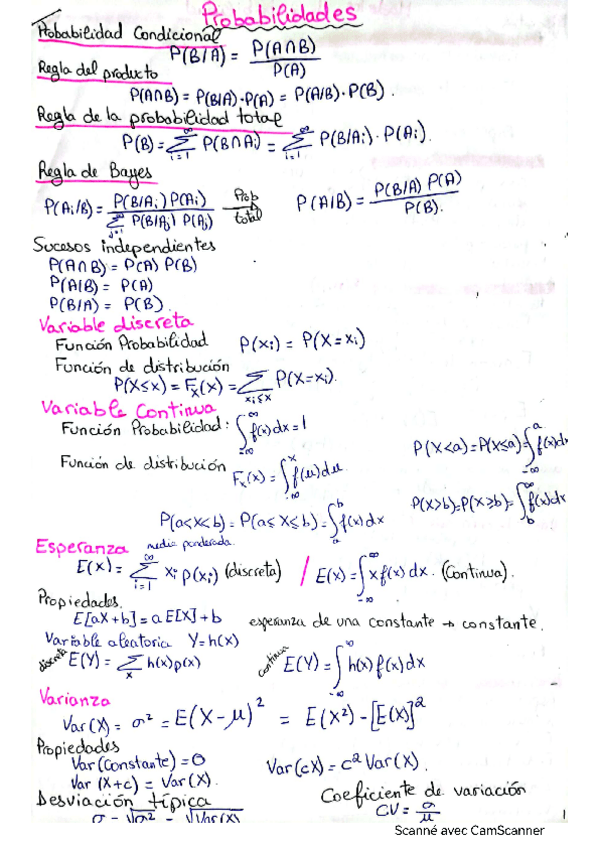 Probabilidades
Probabilidad Condicional
P(B/A) = P(A∩B) / P(A)
Regla del producto
P(A∩B) = P(B/A)·P(A) = P(A/B)·P(B).
Regla de la probabilidad total
P(B) = ∑_{i=1}^{∞} P(B∩Ai) = ∑_{i=1}^{∞} P(B/Ai)·P(Ai).
Regla de Bayes
P(Ai/B) = P(B/Ai) P(Ai) / ∑_{j=1} P(B/Aj) P(Aj) Prob total P(A/B) = P(B/A) P(A) / P(B).
Sucesos independientes
P(A∩B) = P(A) P(B)
P(A/B) = P(A)
P(B/A) = P(B)
Variable discreta
Función Probabilidad P(xi) = P(X=xi)
Función de distribución
P(X≤x) = Fx(x) = ∑_{xi≤x} P(X=xi).
Variable Continua
Función Probabilidad: ∫_{-∞}^{∞} f(x)dx = 1
P(X<a) = P(X≤a) = ∫_{-∞}^{a} f(x)dx
Función de distribución Fx(x) = ∫_{-∞}^{x} f(u)du
P(X>b) = P(X≥b) = ∫_{b}^{∞} f(x)dx
P(a<X<b) = P(a≤X≤b) = ∫_{a}^{b} f(x)dx
Esperanza media ponderada
E(X) = ∑_{i=1}^{∞} xi p(xi) (discreta) / E(x) = ∫_{-∞}^{∞} x f(x) dx. (Continua).
Propiedades.
E[aX+b] = a E[X] + b esperanza de una constante → constante.
Variable aleatoria Y=h(x)
discreta E(Y) = ∑_{x} h(x)p(x) continua E(Y) = ∫_{-∞}^{∞} h(x) f(x) dx
Varianza
Var(X) = σ² = E(X-μ)² = E(X²) - [E(X)]²
Propiedades
Var(Constante) = 0 Var(cX) = c² Var(X).
Var(X+c) = Var(X).
Desviación típica Coeficiente de variación
σ = √σ² = √Var(X) CV = σ/μ
Scanné avec CamScanner